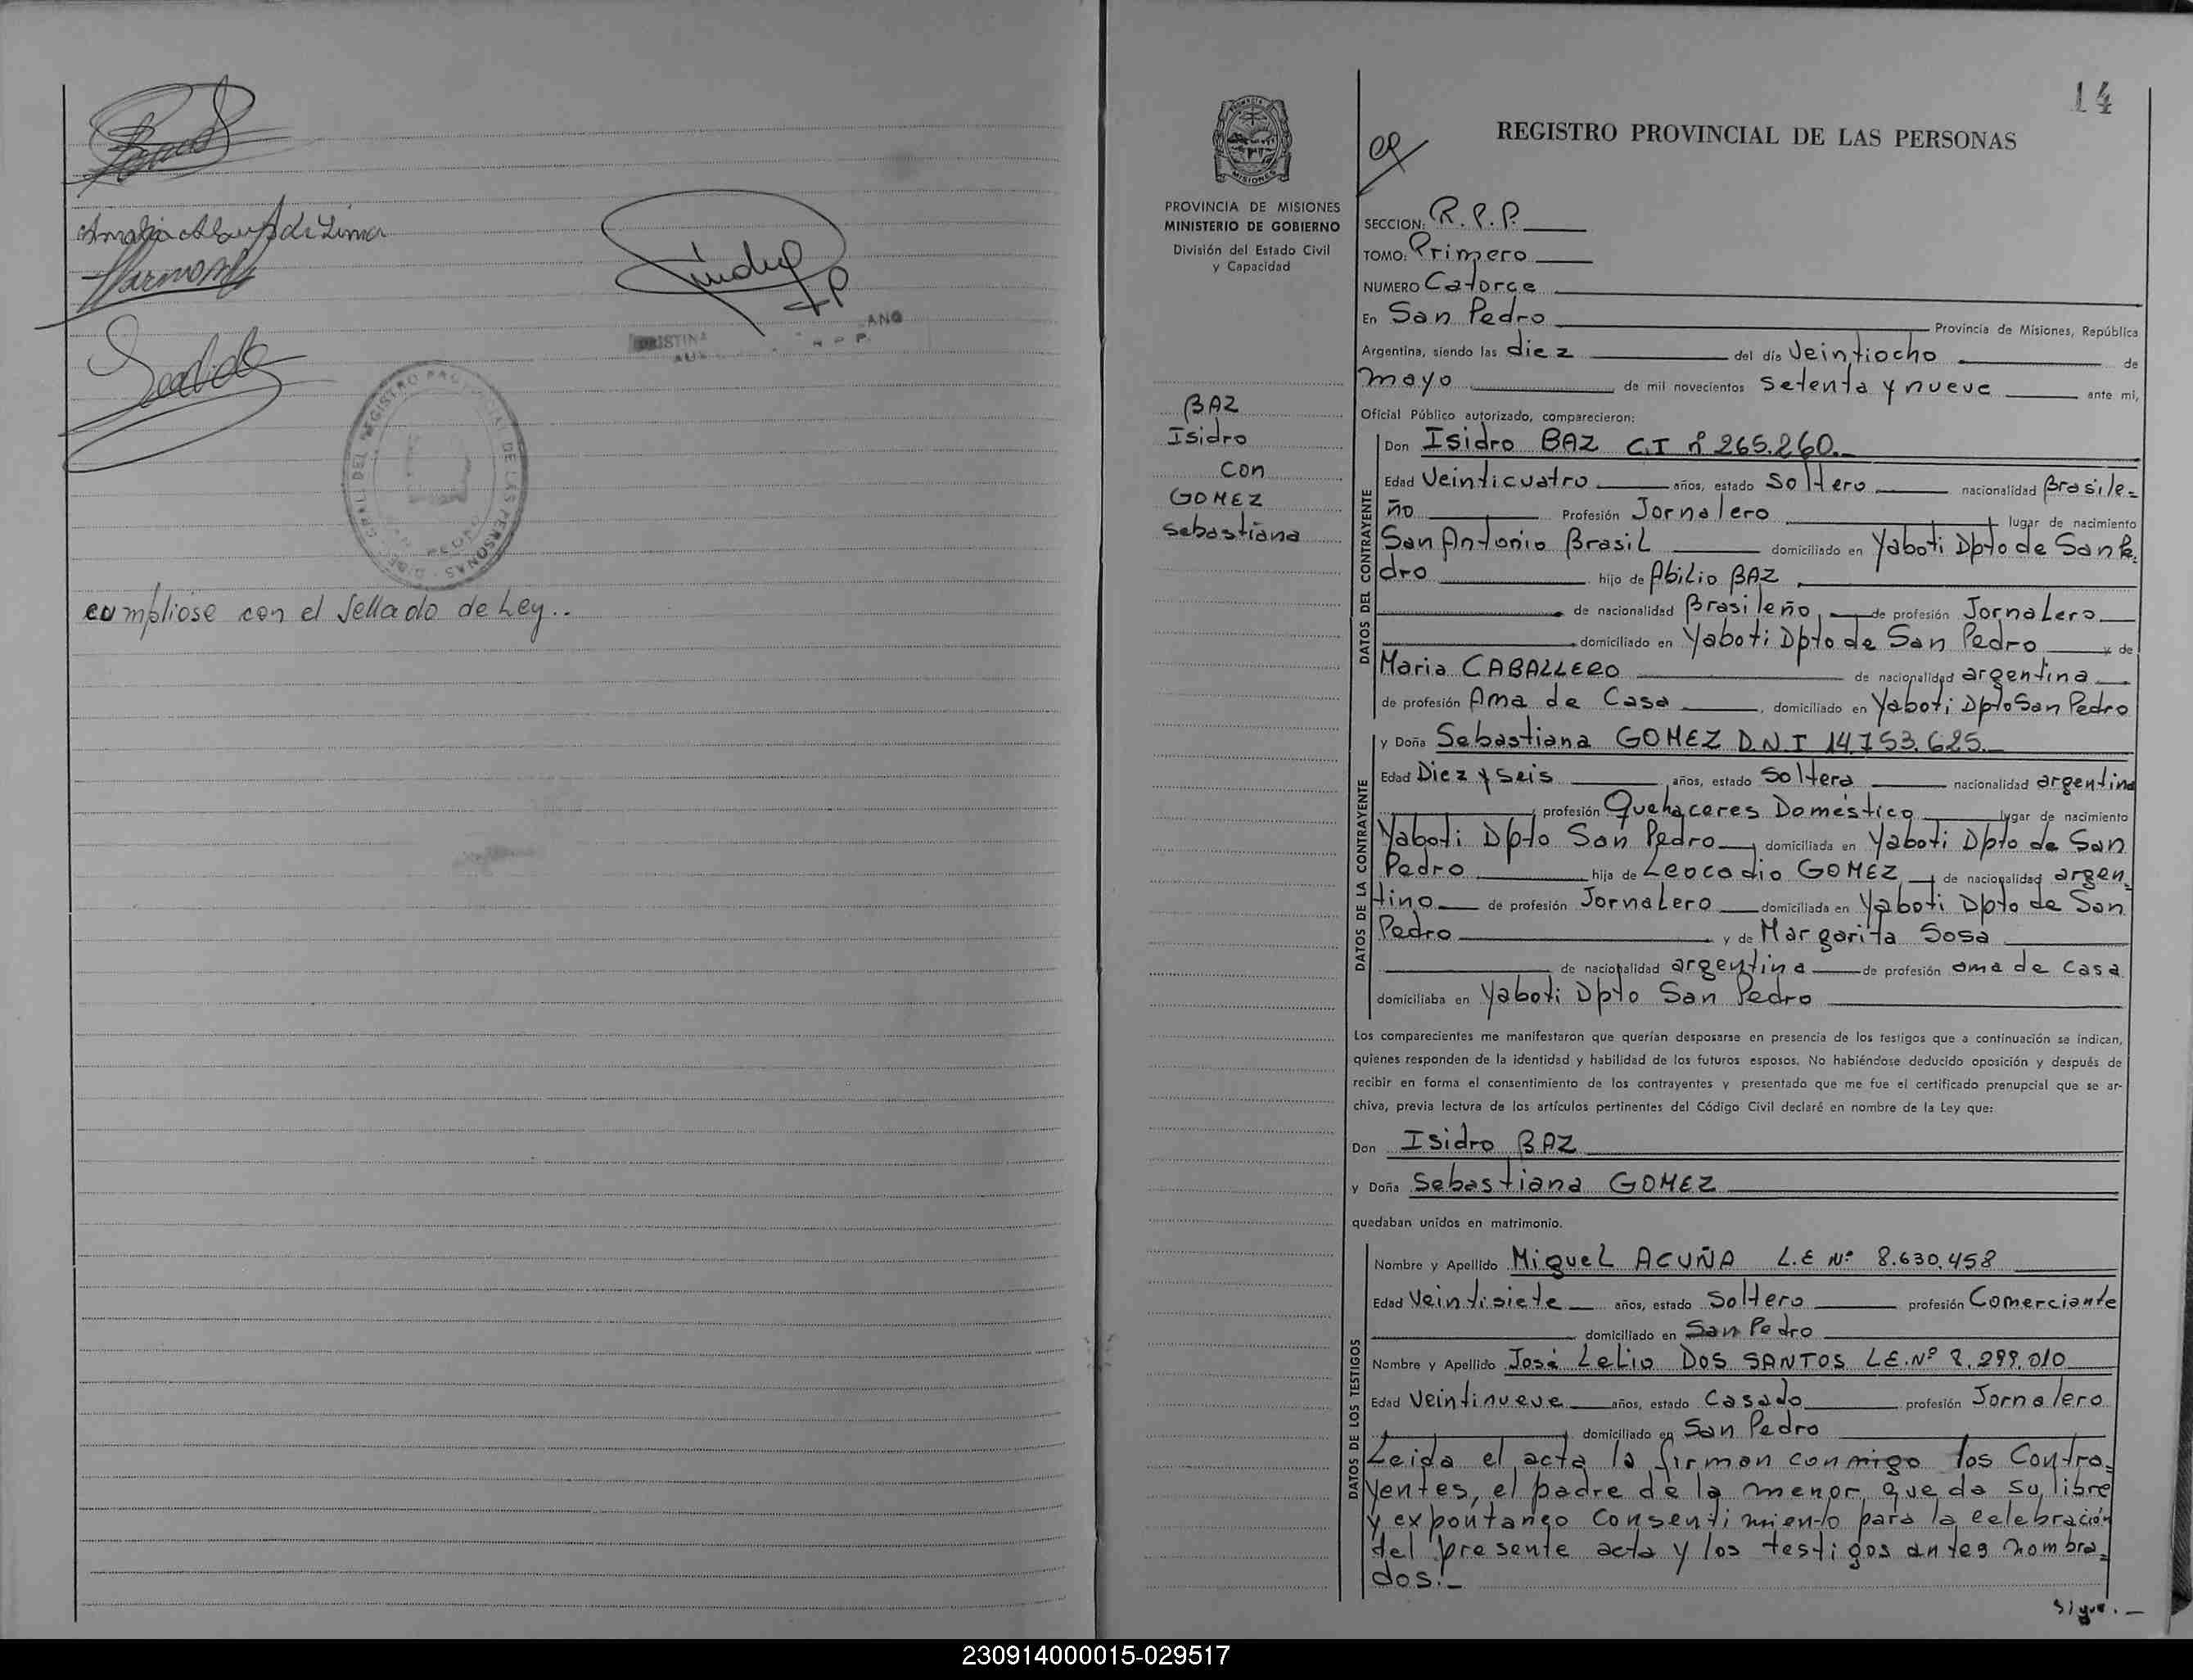 cumpliose con el sellado de Ley..
14
REGISTRO PROVINCIAL DE LAS PERSONAS
MISIONES
PROVINCIA DE MISIONES
MINISTERIO DE GOBIERNO
División del Estado Civil
y Capacidad
BAZ
Isidro
con
GOMEZ
Sebastiana
SECCION: R.P.P.
TOMO: Primero
NUMERO Catorce
En San Pedro Provincia de Misiones, República
Argentina, siendo las diez del día Veintiocho de
mayo de mil novecientos setenta y nueve ante mi,
Oficial Público autorizado, comparecieron:
DATOS DEL CONTRAYENTE
Don Isidro BAZ C.I nº 265.260.-
Edad Veinticuatro años, estado Soltero nacionalidad Brasile-
ño Profesión Jornalero lugar de nacimiento
San Antonio Brasil domiciliado en Yaboti Dpto de San Pe-
dro hijo de Abilio BAZ
de nacionalidad Brasileño, de profesión Jornalero
domiciliado en Yaboti Dpto de San Pedro y de
Maria CABALLERO de nacionalidad argentina
de profesión Ama de Casa, domiciliado en Yaboti Dpto San Pedro
DATOS DE LA CONTRAYENTE
y Doña Sebastiana GOMEZ D.N.I 14.753.625.-
Edad Diez y Seis años, estado Soltera nacionalidad argentina
profesión Quehaceres Doméstico lugar de nacimiento
Yaboti Dpto San Pedro, domiciliada en Yaboti Dpto de San
Pedro hija de Leocadio GOMEZ, de nacionalidad argen-
tino de profesión Jornalero domiciliada en Yaboti Dpto de San
Pedro y de Margarita Sosa
de nacionalidad argentina de profesión ama de casa
domiciliaba en Yaboti Dpto San Pedro
Los comparecientes me manifestaron que querían desposarse en presencia de los testigos que a continuación se indican,
quienes responden de la identidad y habilidad de los futuros esposos. No habiéndose deducido oposición y después de
recibir en forma el consentimiento de los contrayentes y presentado que me fue el certificado prenupcial que se ar-
chiva, previa lectura de los artículos pertinentes del Código Civil declaré en nombre de la Ley que:
Don Isidro BAZ
y Doña Sebastiana GOMEZ
quedaban unidos en matrimonio.
DATOS DE LOS TESTIGOS
Nombre y Apellido Miguel ACUÑA L.E Nº 8.630.458
Edad Veintisiete años, estado Soltero profesión Comerciante
domiciliado en San Pedro
Nombre y Apellido José Lelio DOS SANTOS LE.Nº 8.299.010
Edad Veintinueve años, estado Casado profesión Jornalero
domiciliado en San Pedro
Leida el acta la firman conmigo los Contra-
yentes, el padre de la menor que da su libre
y expontaneo consentimiento para la celebración
del presente acta y los testigos antes nombra-
dos.-
sigue.-
230914000015-029517